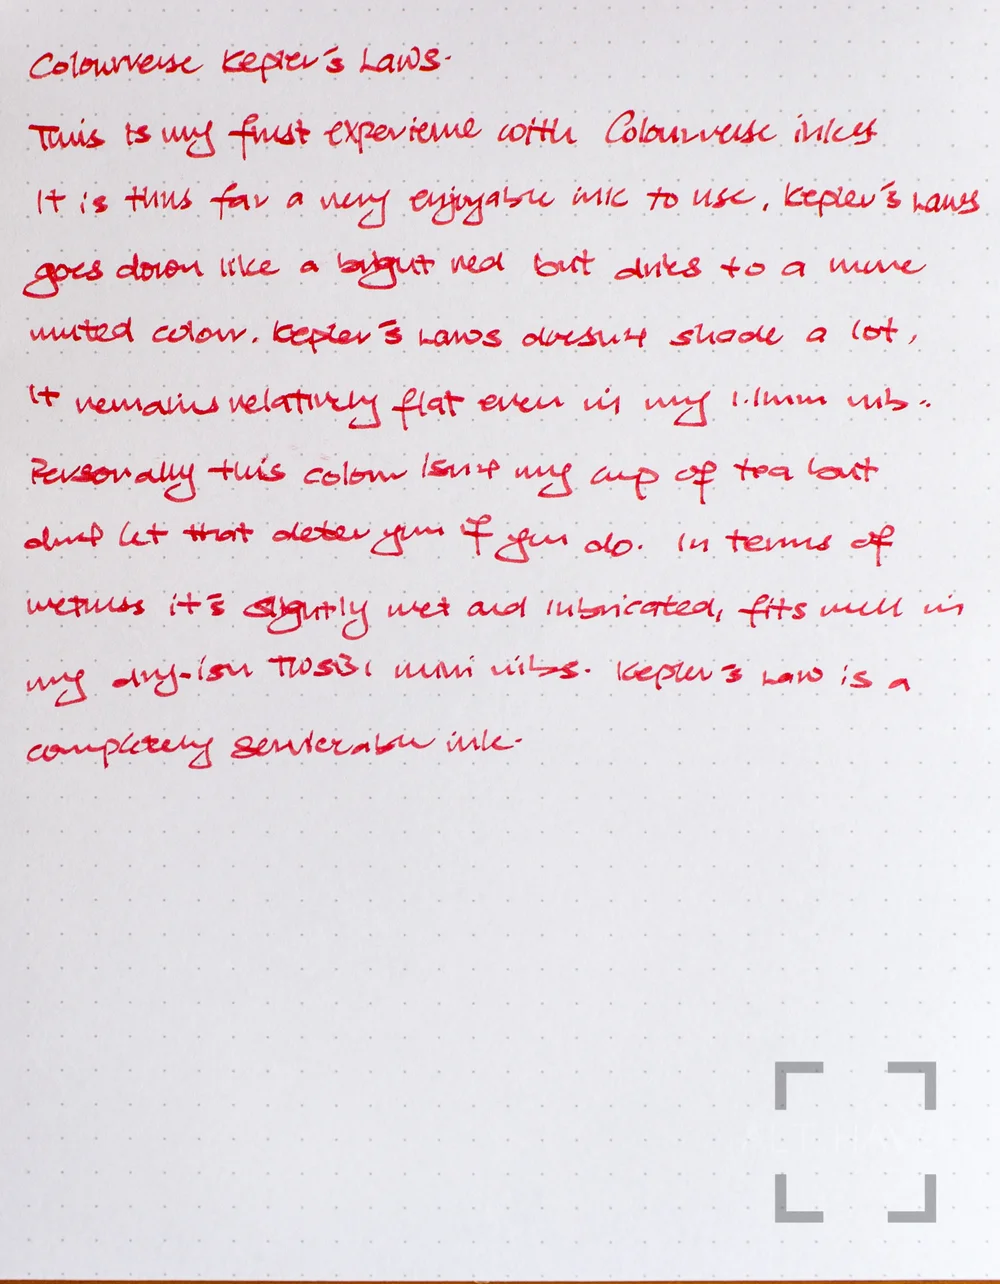 Colourverse Kepler's Laws.
This is my first experience with Colourverse inks
It is thus far a very enjoyable ink to use, Kepler's Laws
goes down like a bright red but dries to a more
muted colour. Kepler's Laws doesn't shade a lot,
It remains relatively flat even in my 1.1mm nib.
Personally this colour isn't my cup of tea but
don't let that deter you if you do. In terms of
wetness it's slightly wet and lubricated, fits well in
my dry-ish TWSBI mini nibs. Kepler's Law is a
completely serviceable ink.